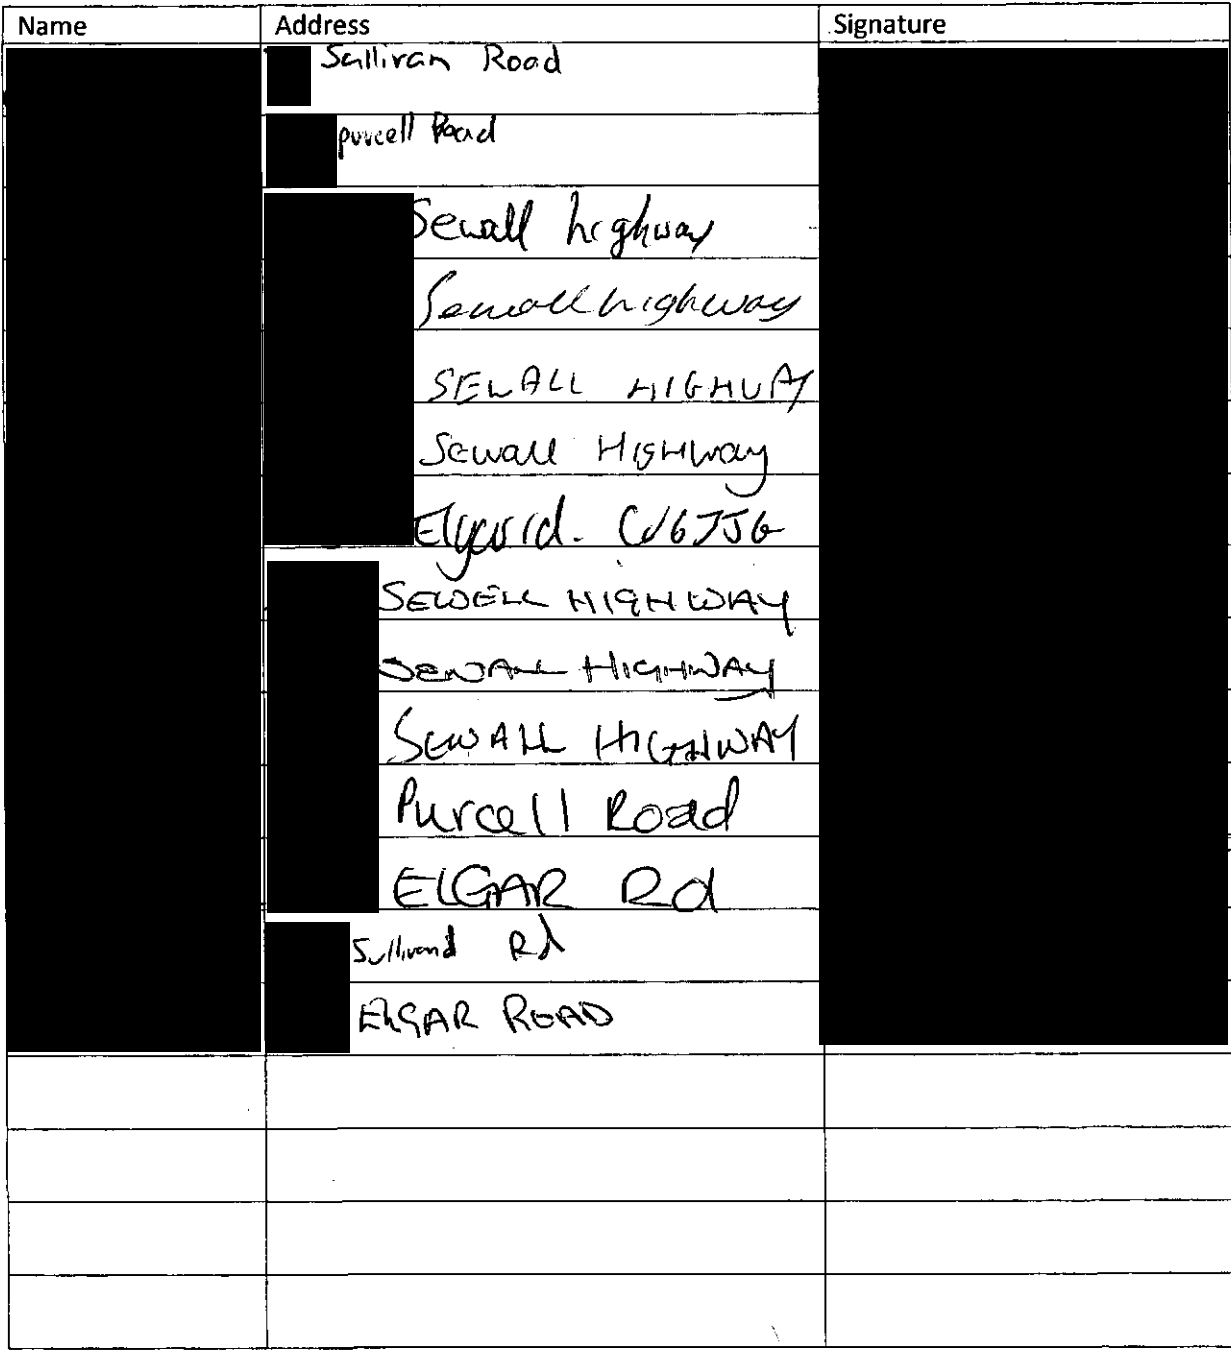 Name Address Signature
Sullivan Road
purcell Road
Sewall highway
Sewall highway
SEWALL HIGHWAY
Sewall Highway
Elgar rd. CV6 7JG
SEWELL HIGHWAY
SEWALL HIGHWAY
SEWALL HIGHWAY
Purcell Road
ELGAR Rd
Sullivand Rd
ELGAR ROAD